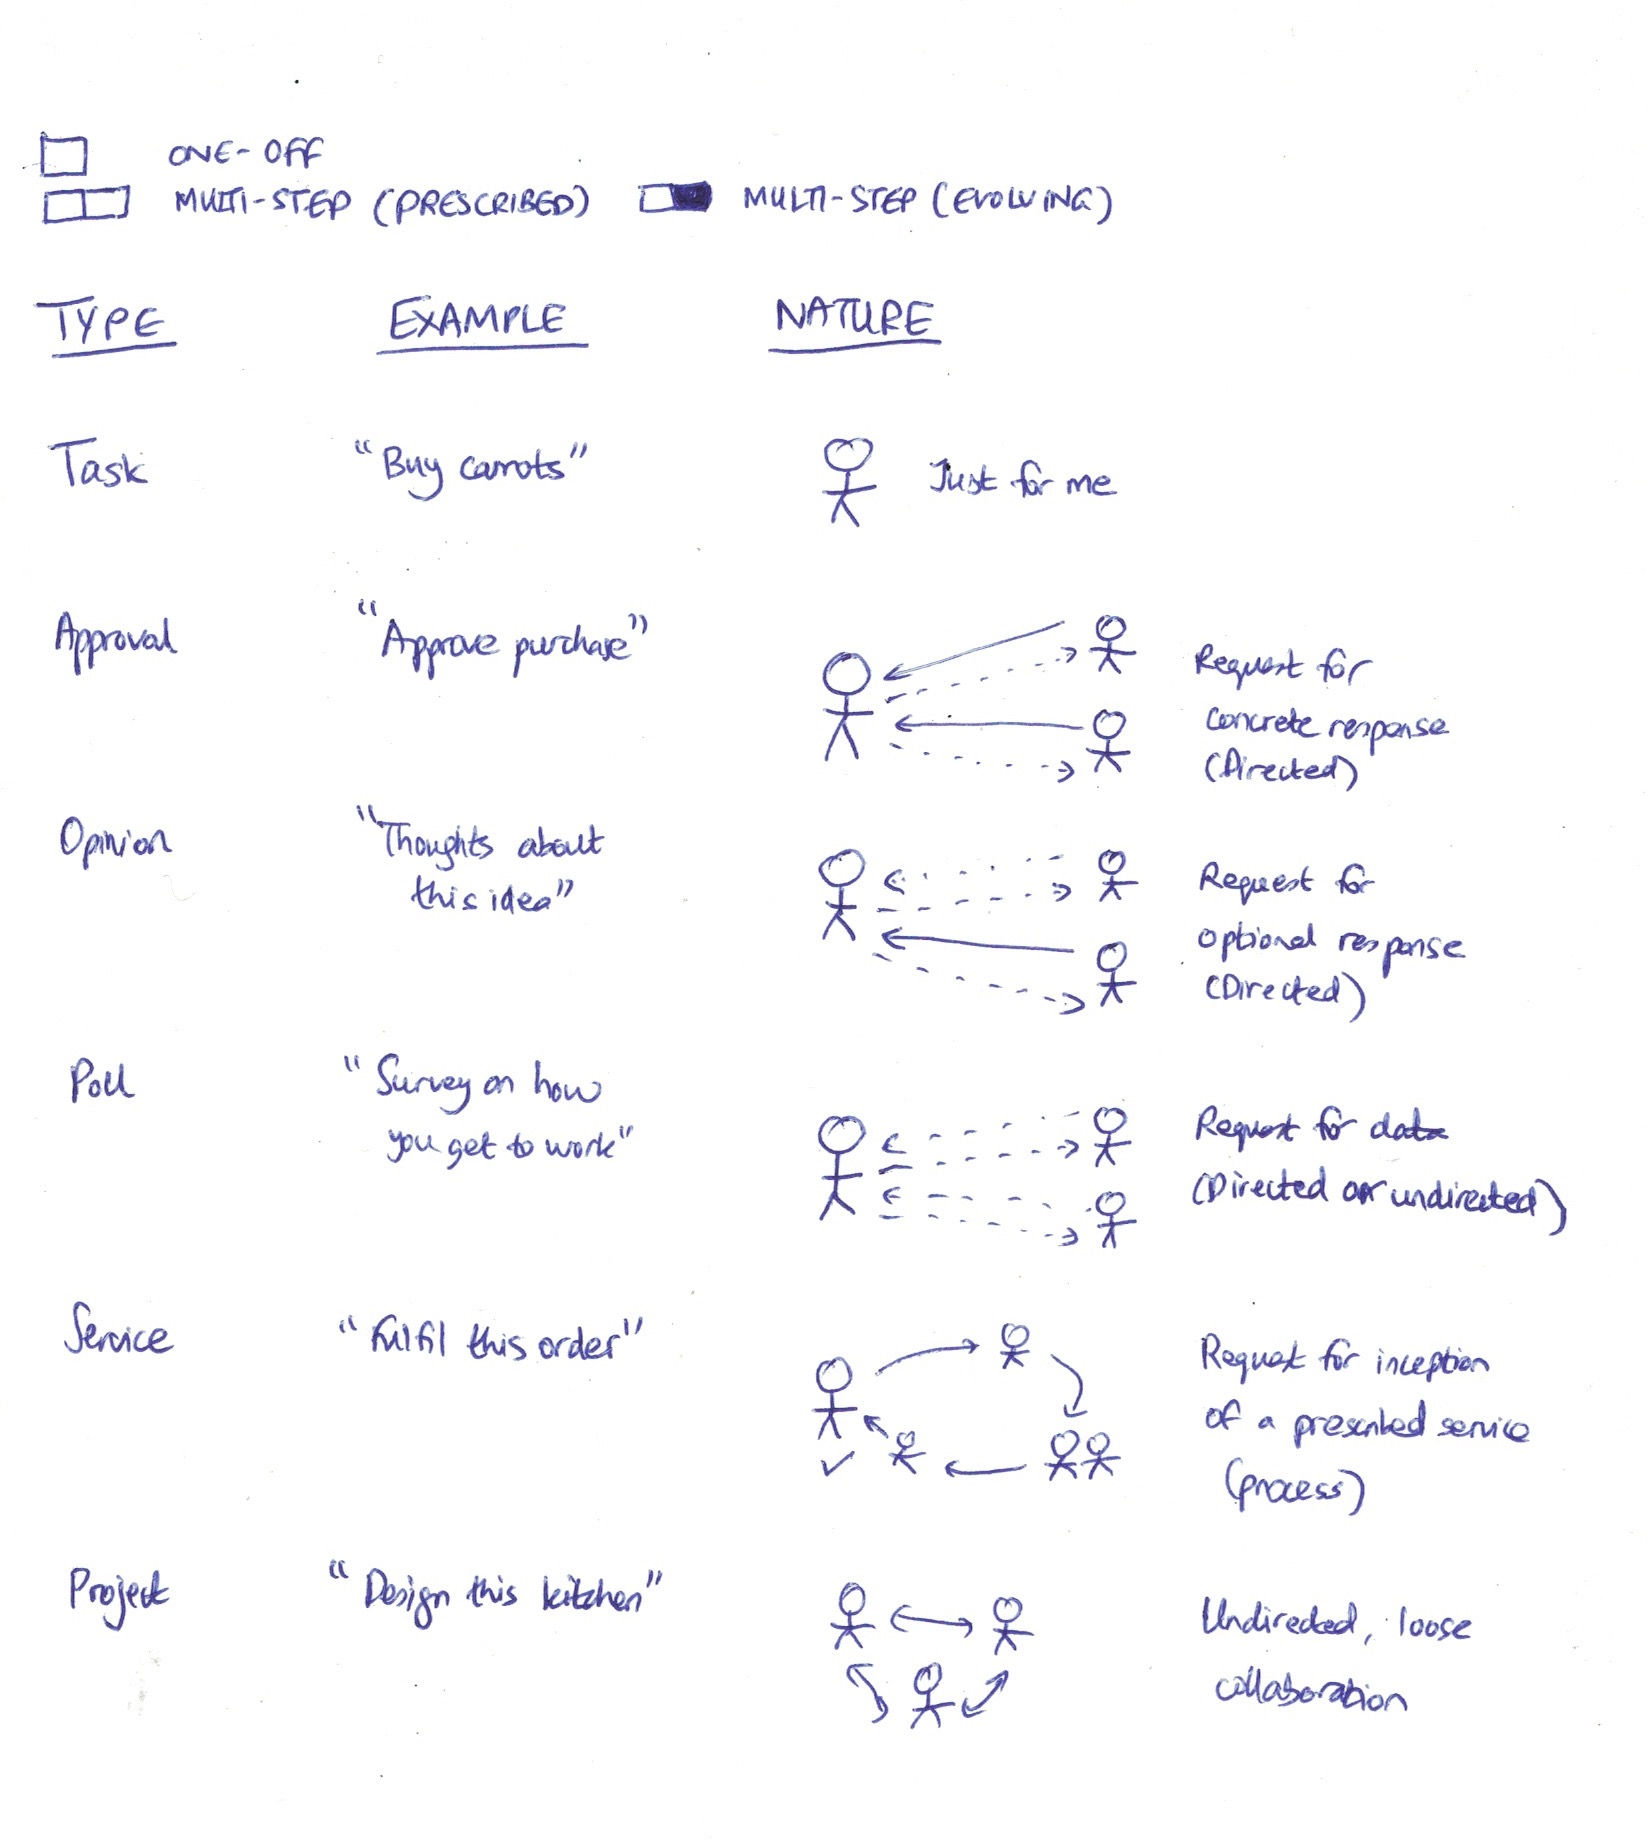 ONE-OFF
MULTI-STEP (PRESCRIBED) MULTI-STEP (EVOLVING)
TYPE EXAMPLE NATURE
Task "Buy carrots" Just for me
Approval "Approve purchase" Request for
concrete response
(Directed)
Opinion "Thoughts about
this idea" Request for
optional response
(Directed)
Poll "Survey on how
you get to work" Request for data
(Directed or undirected)
Service "Fulfil this order" Request for inception
of a prescribed service
(process)
Project "Design this kitchen" Undirected, loose
collaboration